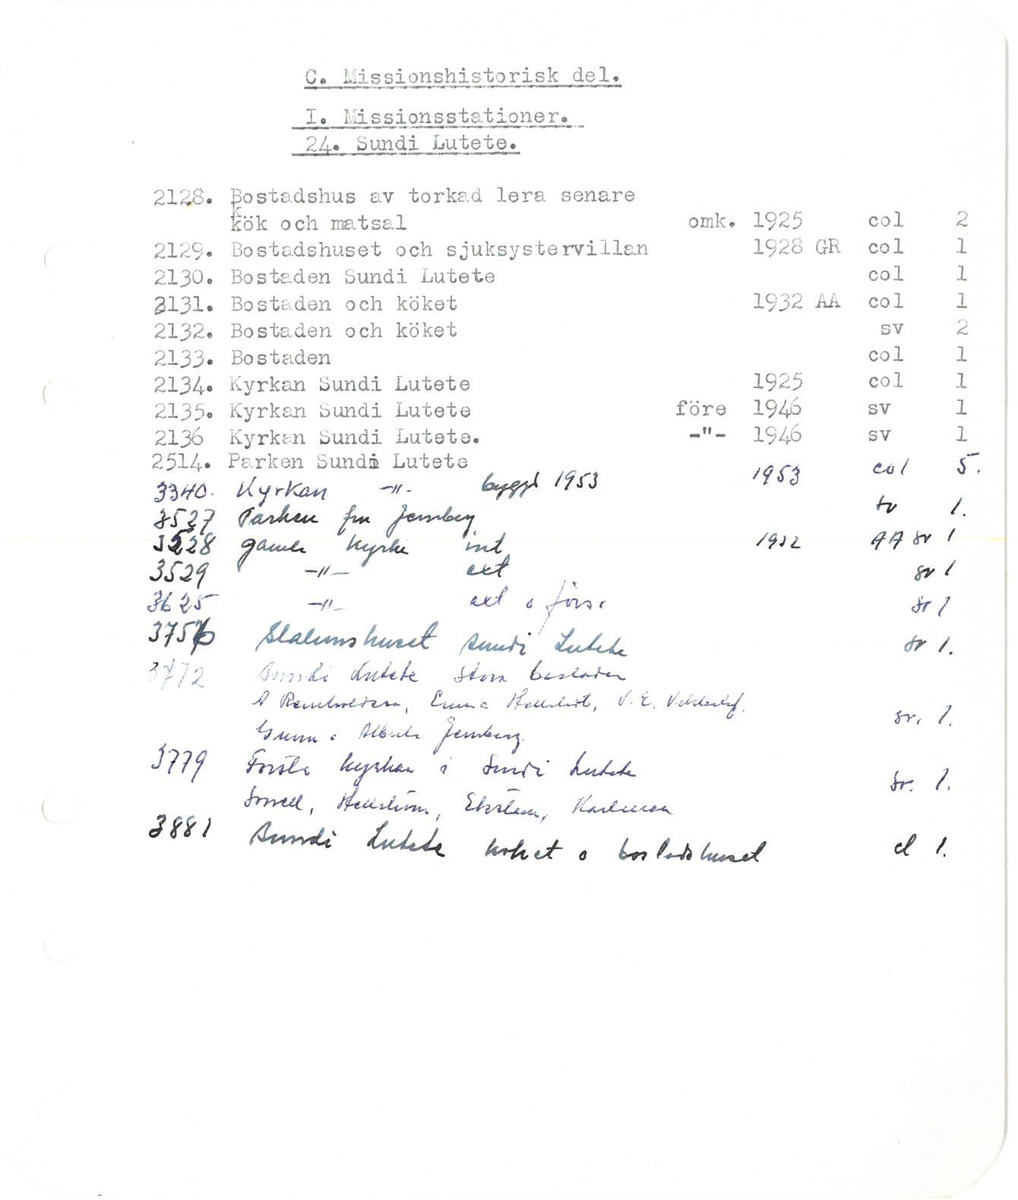 C. Missionshistorisk del.
I. Missionsstationer.
24. Sundi Lutete.
2128. Bostadshus av torkad lera senare
kök och matsal omk. 1925 col 2
2129. Bostadshuset och sjuksystervillan 1928 GR col 1
2130. Bostaden Sundi Lutete col 1
2131. Bostaden och köket 1932 AA col 1
2132. Bostaden och köket sv 2
2133. Bostaden col 1
2134. Kyrkan Sundi Lutete 1925 col 1
2135. Kyrkan Sundi Lutete före 1946 sv 1
2136 Kyrkan Sundi Lutete. -"- 1946 sv 1
2514. Parken Sundi Lutete 1953 col 5.
3340. Kyrkan -"- byggd 1953
3527 Parken fr Jernberg sv 1.
3528 gamla kyrka int 1932 AA sv 1
3529 -"- ext sv 1
3625 -"- ext o sv 1
3756 Sundi Lutete sv 1.
3772 Sundi Lutete Stora bostaden
A Reinholdson, Emma V. E. sv. 1.
Gunn o Alberte Jernberg.
3779 Första kyrkan i Sundi Lutete sv. 1.
Hellström, Ekström, Karlman
3881 Sundi Lutete köket o bostadshuset cl 1.